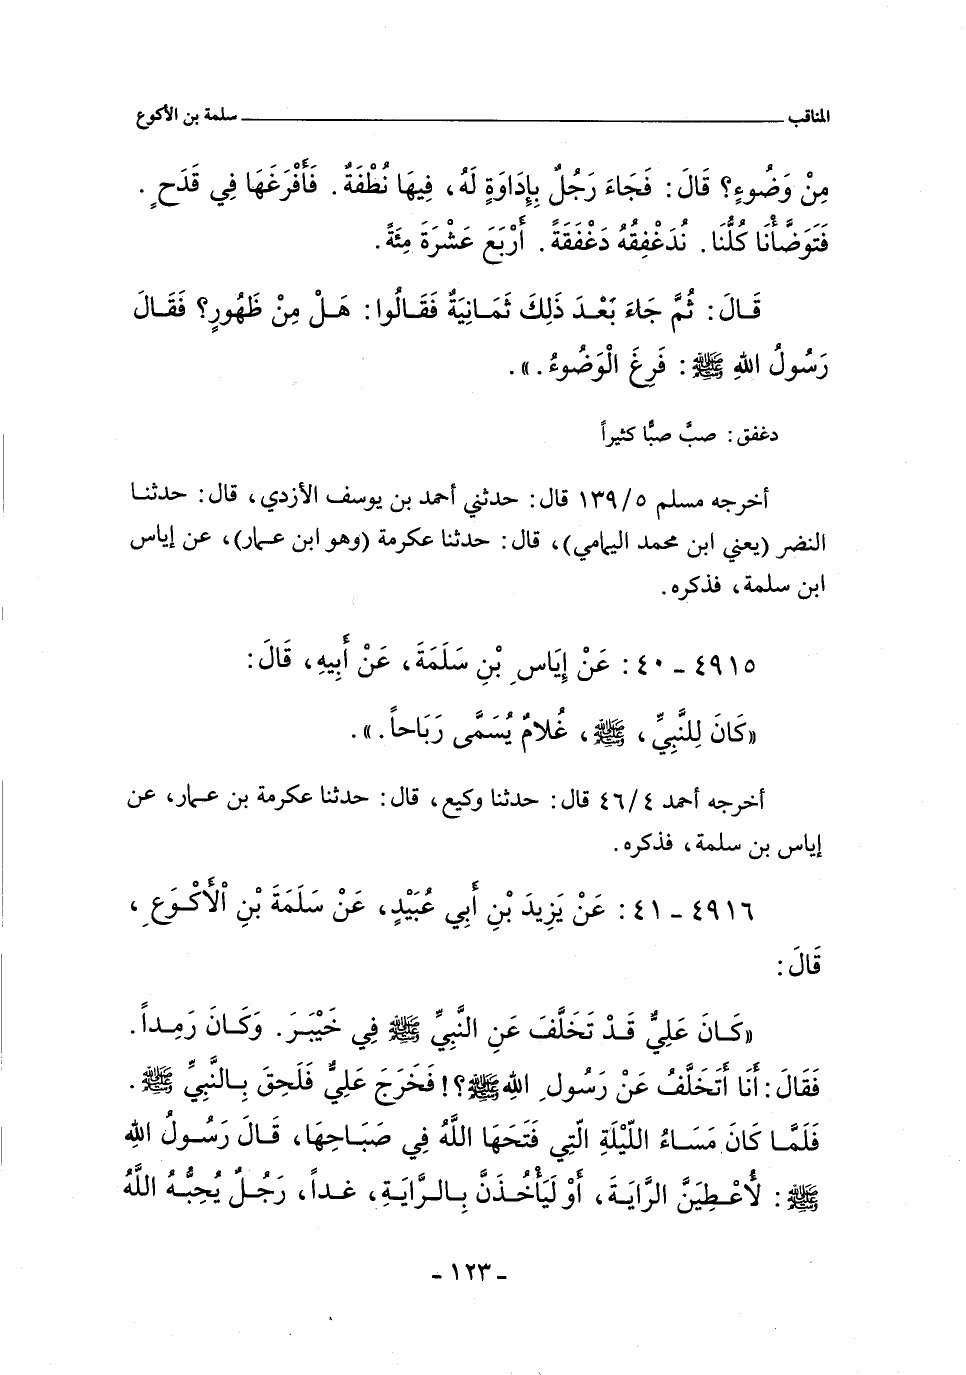 المناقب ــــــــــــ سلمة بن الأكوع
مِنْ وَضُوءٍ؟ قَالَ: فَجَاءَ رَجُلٌ بِإِدَاوَةٍ لَهُ، فِيهَا نُطْفَةٌ. فَأَفْرَغَهَا فِي قَدَحٍ.
فَتَوَضَّأْنَا كُلُّنَا. نُدَغْفِقُهُ دَغْفَقَةً. أَرْبَعَ عَشْرَةَ مِئَةً.
قَالَ: ثُمَّ جَاءَ بَعْدَ ذَلِكَ ثَمَانِيَةٌ فَقَالُوا: هَلْ مِنْ طَهُورٍ؟ فَقَالَ
رَسُولُ اللهِ ﷺ: فَرِغَ الْوَضُوءُ.».
دغفق: صبَّ صبًّا كثيراً
أخرجه مسلم ١٣٩/٥ قال: حدثني أحمد بن يوسف الأزدي، قال: حدثنا
النضر (يعني ابن محمد اليمامي)، قال: حدثنا عكرمة (وهو ابن عمار)، عن إياس
ابن سلمة، فذكره.
٤٩١٥ - ٤٠: عَنْ إِيَاسِ بْنِ سَلَمَةَ، عَنْ أَبِيهِ، قَالَ:
«كَانَ لِلنَّبِيِّ، ﷺ، غُلَامٌ يُسَمَّى رَبَاحاً.».
أخرجه أحمد ٤٦/٤ قال: حدثنا وكيع، قال: حدثنا عكرمة بن عمار، عن
إياس بن سلمة، فذكره.
٤٩١٦ - ٤١: عَنْ يَزِيدَ بْنِ أَبِي عُبَيْدٍ، عَنْ سَلَمَةَ بْنِ الْأَكْوَعِ،
قَالَ:
«كَانَ عَلِيٌّ قَدْ تَخَلَّفَ عَنِ النَّبِيِّ ﷺ فِي خَيْبَرَ. وَكَانَ رَمِداً.
فَقَالَ: أَنَا أَتَخَلَّفُ عَنْ رَسُولِ اللهِ ﷺ؟! فَخَرَجَ عَلِيٌّ فَلَحِقَ بِالنَّبِيِّ ﷺ.
فَلَمَّا كَانَ مَسَاءُ اللَّيْلَةِ الَّتِي فَتَحَهَا اللَّهُ فِي صَبَاحِهَا، قَالَ رَسُولُ اللهِ
ﷺ: لَأُعْطِيَنَّ الرَّايَةَ، أَوْ لَيَأْخُذَنَّ بِالرَّايَةِ، غداً، رَجُلٌ يُحِبُّهُ اللَّهُ
- ١٢٣ -